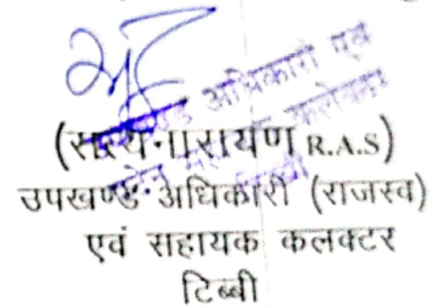 उपखण्ड अधिकारी एवं
कलेक्टर
(सत्यनारायण R.A.S)
उपखण्ड अधिकारी (राजस्व)
एवं सहायक कलक्टर
टिब्बी